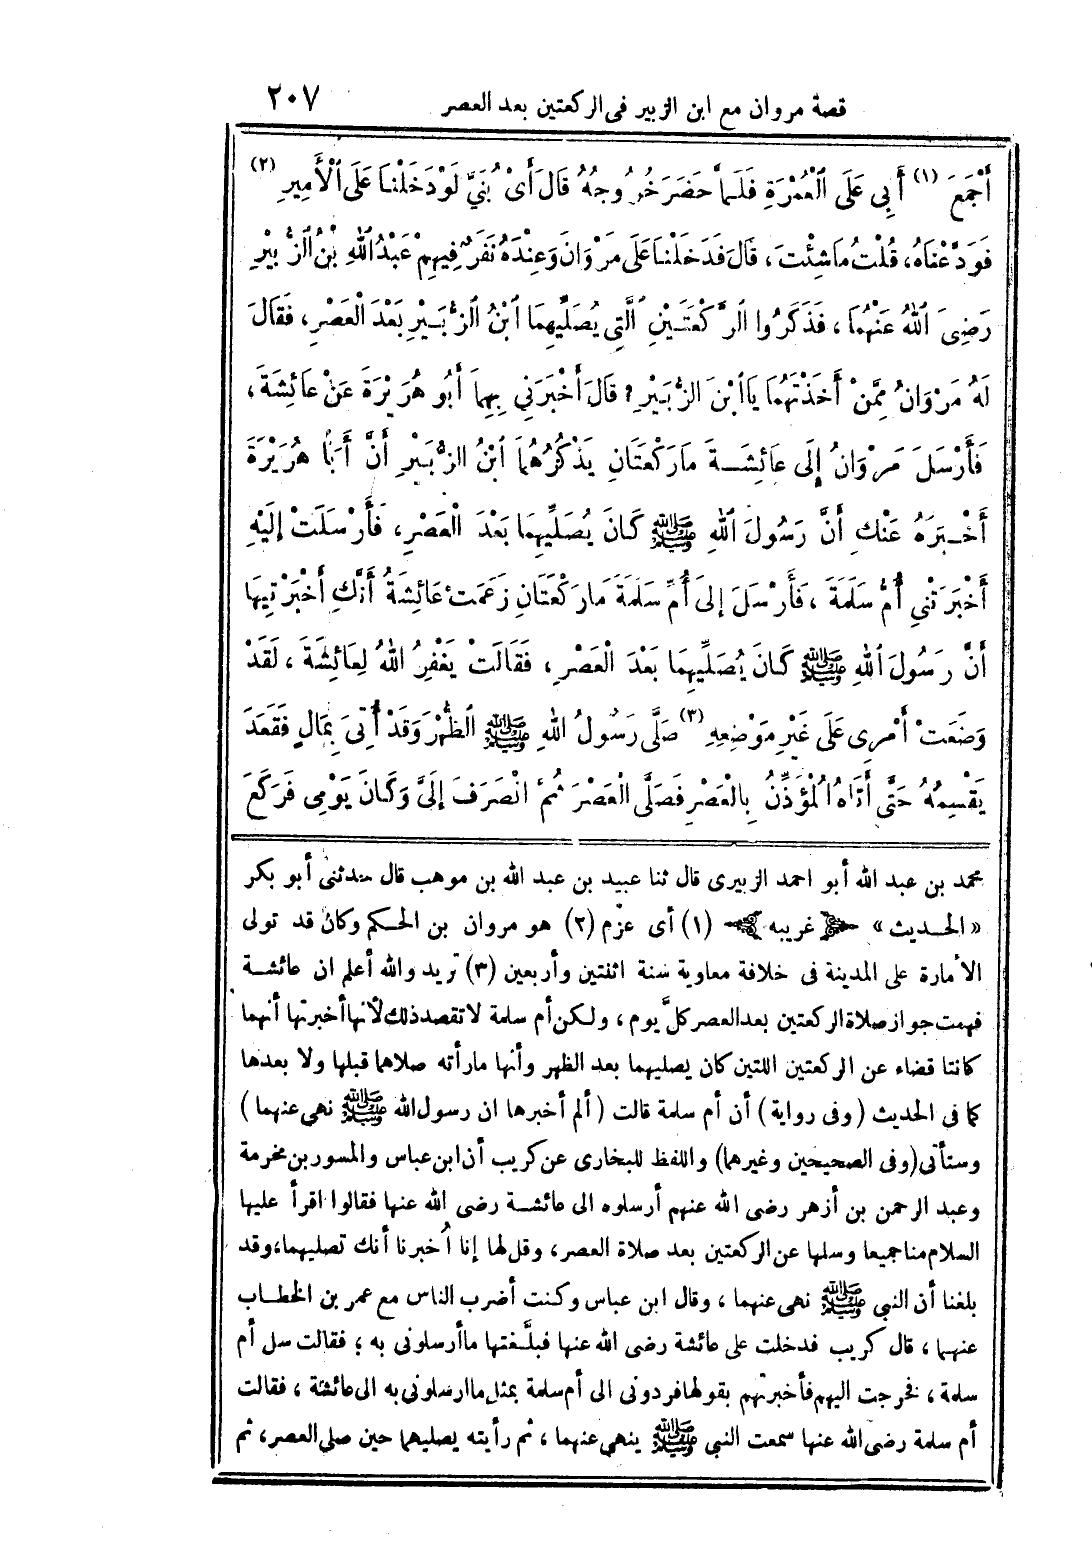 قصة مروان مع ابن الزبير فى الركعتين بعد العصر ٢٠٧
أَجْمَعَ (١) أَبِى عَلَى الْعُمْرَةِ فَلَمَّا حَضَرَ خُرُوجُهُ قَالَ أَىْ بُنَيَّ لَوْ دَخَلْنَا عَلَى الْأَمِيرِ (٢)
فَوَدَّعْنَاهُ، قُلْتُ مَا شِئْتَ، قَالَ فَدَخَلْنَا عَلَى مَرْوَانَ وَعِنْدَهُ نَفَرٌ فِيهِمْ عَبْدُ اللهِ بْنُ الزُّبَيْرِ
رَضِىَ اللهُ عَنْهُمَا، فَذَكَرُوا الرَّكْعَتَيْنِ الَّتِى يُصَلِّيهِمَا ابْنُ الزُّبَيْرِ بَعْدَ الْعَصْرِ، فَقَالَ
لَهُ مَرْوَانُ مِمَّنْ أَخَذْتَهُمَا يَا ابْنَ الزُّبَيْرِ؟ قَالَ أَخْبَرَنِى بِهِمَا أَبُو هُرَيْرَةَ عَنْ عَائِشَةَ،
فَأَرْسَلَ مَرْوَانُ إِلَى عَائِشَةَ مَا رَكْعَتَانِ يَذْكُرُهُمَا ابْنُ الزُّبَيْرِ أَنَّ أَبَا هُرَيْرَةَ
أَخْبَرَهُ عَنْكِ أَنَّ رَسُولَ اللهِ ﷺ كَانَ يُصَلِّيهِمَا بَعْدَ الْعَصْرِ، فَأَرْسَلَتْ إِلَيْهِ
أَخْبَرَتْنِى أُمُّ سَلَمَةَ، فَأَرْسَلَ إِلَى أُمِّ سَلَمَةَ مَا رَكْعَتَانِ زَعَمَتْ عَائِشَةُ أَنَّكِ أَخْبَرْتِيهَا
أَنَّ رَسُولَ اللهِ ﷺ كَانَ يُصَلِّيهِمَا بَعْدَ الْعَصْرِ، فَقَالَتْ يَغْفِرُ اللهُ لِعَائِشَةَ، لَقَدْ
وَضَعَتْ أَمْرِى عَلَى غَيْرِ مَوْضِعِهِ (٣) صَلَّى رَسُولُ اللهِ ﷺ الظُّهْرَ وَقَدْ أُتِىَ بِمَالٍ فَقَعَدَ
يَقْسِمُهُ حَتَّى أَتَاهُ الْمُؤَذِّنُ بِالْعَصْرِ فَصَلَّى الْعَصْرَ ثُمَّ انْصَرَفَ إِلَىَّ وَكَانَ يَوْمِى فَرَكَعَ
محمد بن عبد الله أبو احمد الزبيرى قال ثنا عبيد بن عبد الله بن موهب قال حدثنى أبو بكر
«الحديث» غريبه (١) أى عزم (٢) هو مروان بن الحكم وكان قد تولى
الأمارة على المدينة فى خلافة معاوية سنة اثنتين وأربعين (٣) تريد والله أعلم ان عائشة
فهمت جواز صلاة الركعتين بعد العصر كلَّ يوم، ولكن أم سلمة لا تقصد ذلك لأنها أخبرتها أنهما
كانتا قضاء عن الركعتين اللتين كان يصليهما بعد الظهر وأنها ما رأته صلاهما قبلها ولا بعدها
كما فى الحديث (وفى رواية) أن أم سلمة قالت (ألم أخبرها ان رسول الله ﷺ نهى عنهما)
وستأتى (وفى الصحيحين وغيرهما) واللفظ للبخارى عن كريب أن ابن عباس والمسور بن مخرمة
وعبد الرحمن بن أزهر رضى الله عنهم أرسلوه الى عائشة رضى الله عنها فقالوا اقرأ عليها
السلام منا جميعا وسلها عن الركعتين بعد صلاة العصر، وقل لها إنا أُخبرنا أنك تصليهما، وقد
بلغنا أن النبي ﷺ نهى عنهما، وقال ابن عباس وكنت أضرب الناس مع عمر بن الخطاب
عنهما، قال كريب فدخلت على عائشة رضى الله عنها فبلَّغتها ما أرسلونى به؛ فقالت سل أم
سلمة، فخرجت اليهم فأخبرتهم بقولها فردونى الى أم سلمة بمثل ما ارسلونى به الى عائشة، فقالت
أم سلمة رضى الله عنها سمعت النبي ﷺ ينهى عنهما، ثم رأيته يصليهما حين صلى العصر، ثم